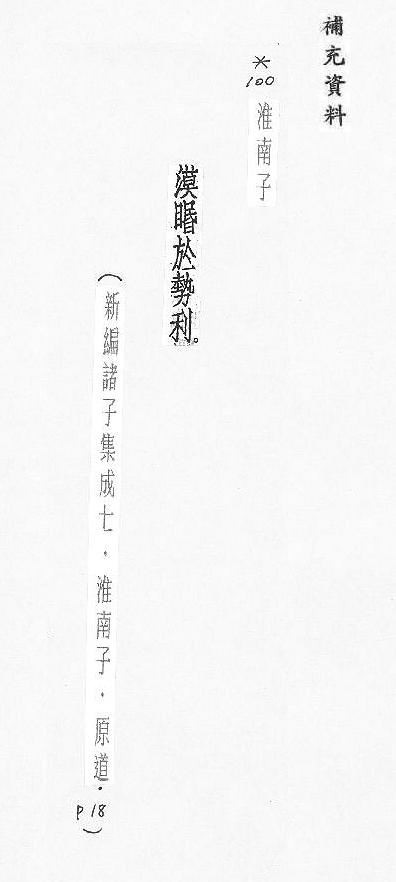 補充資料
*100 淮南子
漠睧於勢利。
(新編諸子集成七．淮南子．原道．P18)